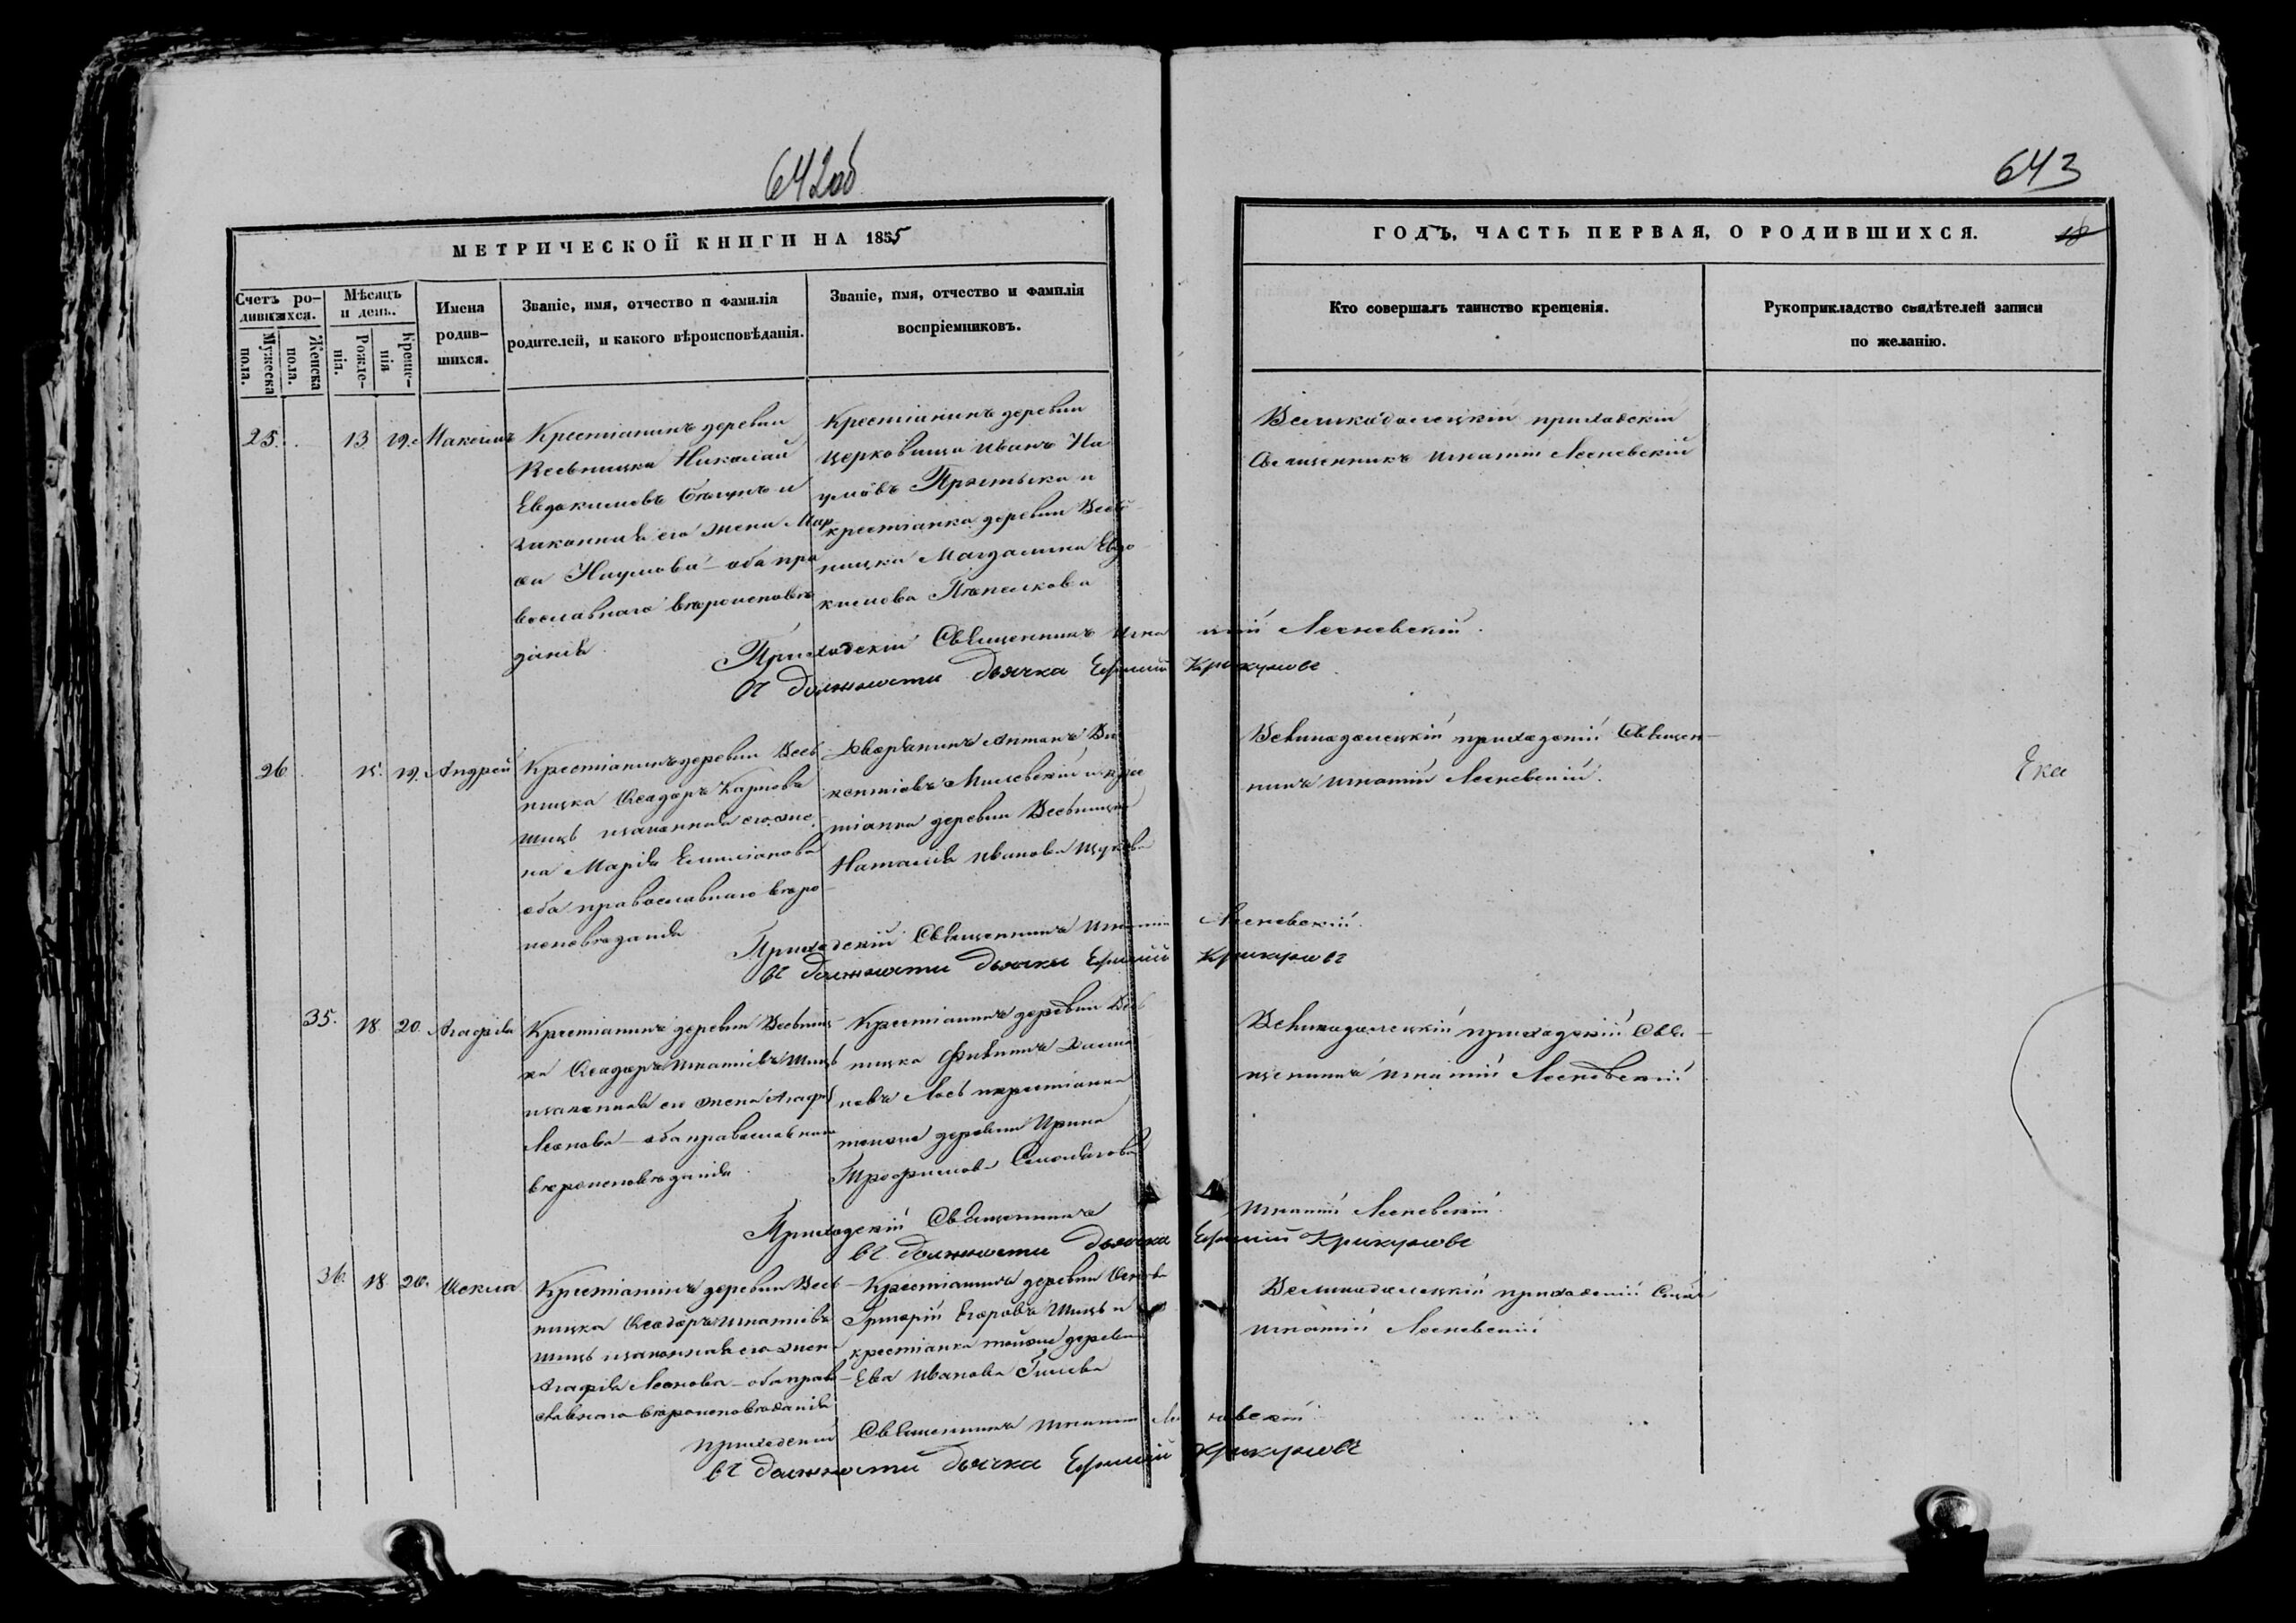 642об
643
МЕТРИЧЕСКОЙ КНИГИ НА 1855
ГОДЪ, ЧАСТЬ ПЕРВАЯ, О РОДИВШИХСЯ.
Счетъ ро-
дившихся.
Мужеска
пола.
Женска
пола.
Мѣсяцъ
и день.
Рожде-
нія.
Креще-
нія
Имена
родив-
шихся.
Званіе, имя, отчество и фамилія
родителей, и какого вѣроисповѣданія.
Званіе, имя, отчество и фамилія
воспріемниковъ.
Кто совершалъ таинство крещенія.
Рукоприкладство свидѣтелей записи
по желанію.
25. 13 19. Максимъ
Крестіанинъ деревни
Весьницка Николай
Евдокимовъ и
законная его жена Мар
ѳа Наумова – оба пра
вославнаго вѣроисповѣ
данія
Крестіанинъ деревни
Церковища Иванъ На
умовъ и
крестіанка деревни Весь
ницка Магдалина Евдо
кимова
Великодолецкій приходскій
Священникъ Игнатій Лесневскій
Приходскій Священникъ Игнатій Лесневскій.
Въ должности дьячка Ефимій Крикуновъ
26 15. 19. Андрей
Крестіанинъ деревни Весь
ницка Ѳеодоръ Карповъ
Шицъ и законная его же
на Марія Емиліанова
оба православнаго вѣро
исповѣданія
Дворянинъ Антонъ Ви
кентіевъ и крес
тіанка деревни Весьницка
Наталія Иванова
Великодолецкій приходскій Священ–
никъ Игнатій Лесневскій.
Приходскій Священникъ Игнатій Лесневскій.
Въ должности дьячка Ефимій Крикуновъ
35. 18. 20. Агафія
Крестіанинъ деревни Весьниц
ка Ѳеодоръ Игнатіевъ Шицъ
и законная его жена Агафія
Леонова – оба православнаго
вѣроисповѣданія
Крестіанинъ деревни Весь
ницка Филиппъ
Лось и крестіанка
тойже деревни Ирина
Трофимова
Великодолецкій приходскій Свя–
щенникъ Игнатій Лесневскій
Приходскій Священникъ Игнатій Лесневскій.
Въ должности дьячка Ефимій Крикуновъ
36. 18. 20. Ѳекла
Крестіанинъ деревни Весь
ницка Ѳеодоръ Игнатіевъ
Шицъ и законная его жена
Агафія Леонова – оба право
славнаго вѣроисповѣданія
Крестіанинъ деревни
Григорій Егоровъ Шицъ и
крестіанка тойже деревни
Ева Иванова
Великодолецкій приходскій
Игнатій Лесневскій
Приходскій Священникъ Игнатій Лесневскій
Въ должности дьячка Ефимій Крикуновъ